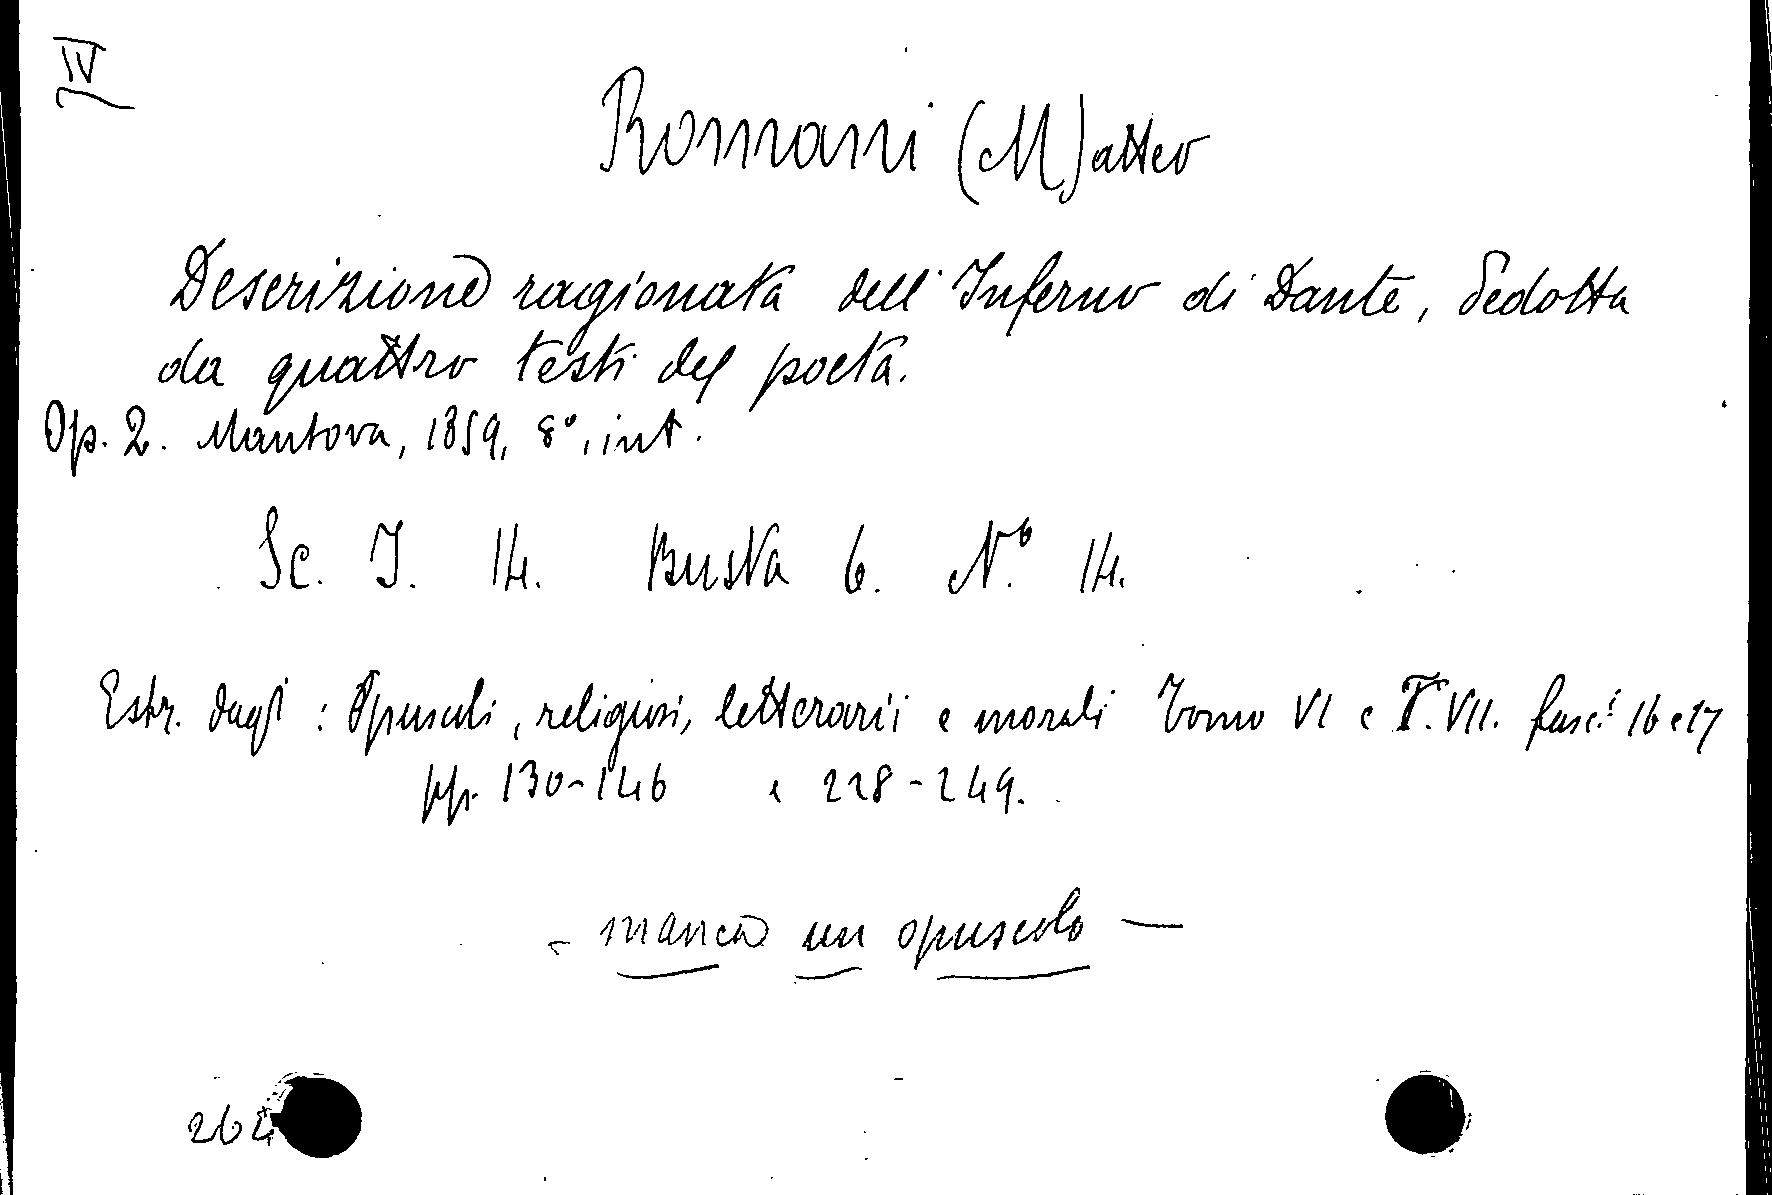 IV
Romani (M)atteo
Descrizione ragionata dell'Inferno di Dante, dedotta
da quattro testi del poeta.
Op. 2. Mantova, 1859, 8°, int.
Sc. I. 14. Busta 6. N.º 14.
Estr. dagl : Opuscoli, religiosi, letterarii e morali Tomo VI e T. VII. fasc.i 16 e 17
pp. 130-146 e 228-249.
- manca un opuscolo -